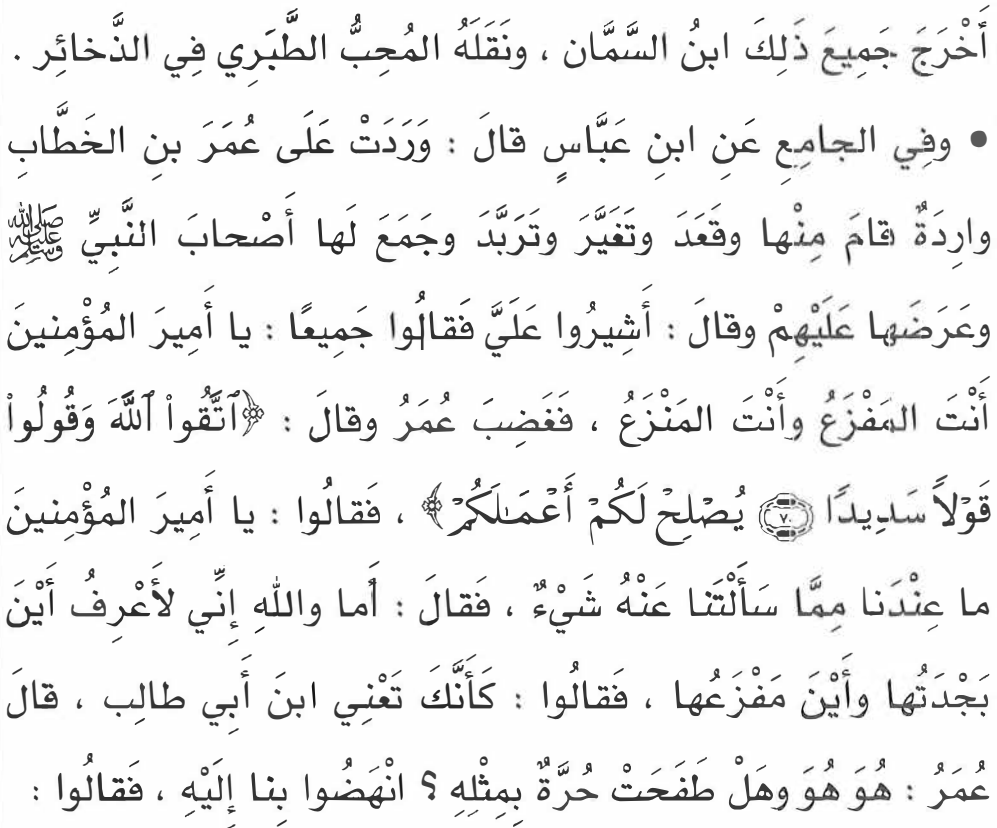 أَخْرَجَ جَمِيعَ ذَلِكَ ابنُ السَّمَّان ، ونَقَلَهُ المُحِبُّ الطَّبَرِي فِي الذَّخائِر .
• وفِي الجامِعِ عَنِ ابنِ عَبَّاسٍ قالَ : وَرَدَتْ عَلَى عُمَرَ بنِ الخَطَّابِ
وارِدَةٌ قامَ مِنْها وقَعَدَ وتَغَيَّرَ وتَرَبَّدَ وجَمَعَ لَها أَصْحابَ النَّبِيِّ ﷺ
وعَرَضَها عَلَيْهِمْ وقالَ : أَشِيرُوا عَلَيَّ فَقالُوا جَمِيعًا : يا أَمِيرَ المُؤْمِنينَ
أَنْتَ المَفْزَعُ وأَنْتَ المَنْزَعُ ، فَغَضِبَ عُمَرُ وقالَ : ﴿ٱتَّقُواْ ٱللَّهَ وَقُولُواْ
قَوْلاً سَدِيدًا ٧٠ يُصْلِحْ لَكُمْ أَعْمَـٰلَكُمْ﴾ ، فَقالُوا : يا أَمِيرَ المُؤْمِنينَ
ما عِنْدَنا مِمَّا سَأَلْتَنا عَنْهُ شَيْءٌ ، فَقالَ : أَما واللهِ إِنِّي لأَعْرِفُ أَيْنَ
بَجْدَتُها وأَيْنَ مَفْزَعُها ، فَقالُوا : كَأَنَّكَ تَعْنِي ابنَ أَبِي طالِب ، قالَ
عُمَرُ : هُوَ هُوَ وهَلْ طَفَحَتْ حُرَّةٌ بِمِثْلِهِ ؟ انْهَضُوا بِنا إِلَيْهِ ، فَقالُوا :